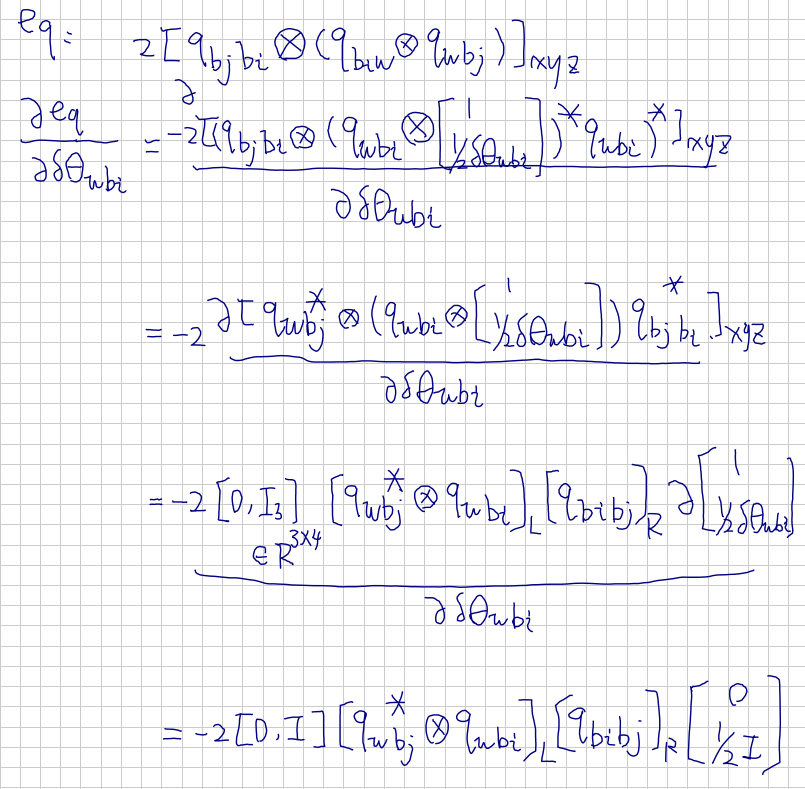 eq: 2[q_{bjbi} ⊗ (q_{biw} ⊗ q_{wbj})]_{xyz}
∂eq / ∂δθ_{wbi} = -2 ∂[(q_{bjbi} ⊗ (q_{wbi} ⊗ [1; 1/2 δθ_{wbi}])^* q_{wbi})^*]_{xyz} / ∂δθ_{wbi}
= -2 ∂[q_{wbj}^* ⊗ (q_{wbi} ⊗ [1; 1/2 δθ_{wbi}]) q_{bjbi}^*]_{xyz} / ∂δθ_{wbi}
= -2 [0, I_3] [q_{wbj}^* ⊗ q_{wbi}]_L [q_{bibj}]_R ∂[1; 1/2 δθ_{wbi}] / ∂δθ_{wbi}
∈ R^{3×4}
= -2 [0, I] [q_{wbj}^* ⊗ q_{wbi}]_L [q_{bibj}]_R [0; 1/2 I]